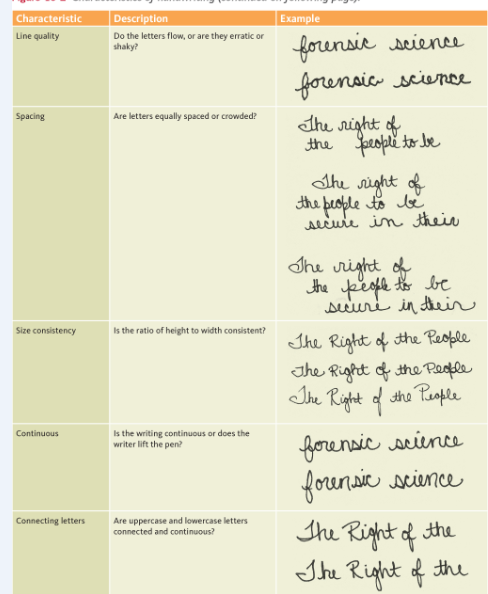 Characteristic Description Example
Line quality
Do the letters flow, or are they erratic or
shaky?
forensic science
forensic science
Spacing
Are letters equally spaced or crowded?
The right of
the people to be
The right of
the people to be
secure in their
The right of
the people to be
secure in their
Size consistency
Is the ratio of height to width consistent?
The Right of the People
The Right of the People
The Right of the People
Continuous
Is the writing continuous or does the
writer lift the pen?
forensic science
forensic science
Connecting letters
Are uppercase and lowercase letters
connected and continuous?
The Right of the
The Right of the